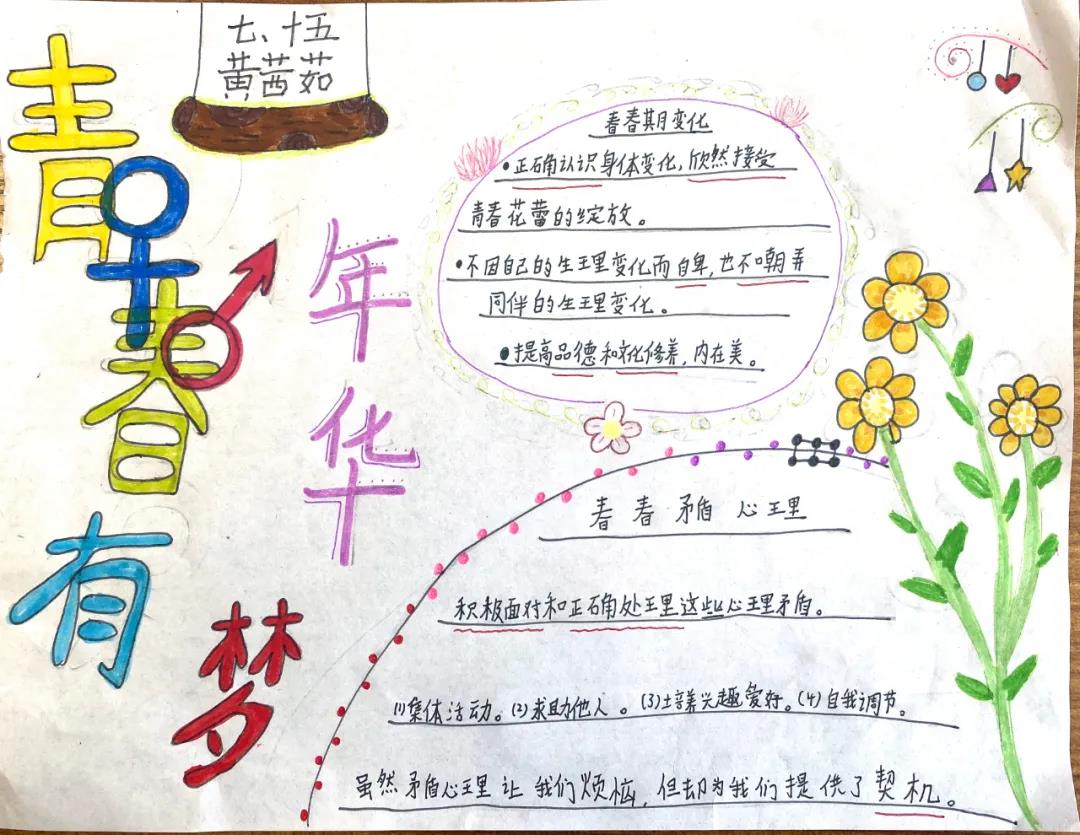 七、十五
黄茜茹
青春
有
梦
年华
青春期变化
•正确认识身体变化,欣然接受
青春花蕾的绽放。
•不因自己的生理变化而自卑,也不嘲弄
同伴的生理变化。
•提高品德和文化修养,内在美。
青春矛盾心理
积极面对和正确处理这些心理矛盾。
(1)集体活动。(2)求助他人。(3)培养兴趣爱好。(4)自我调节。
虽然矛盾心理让我们烦恼,但却为我们提供了契机。